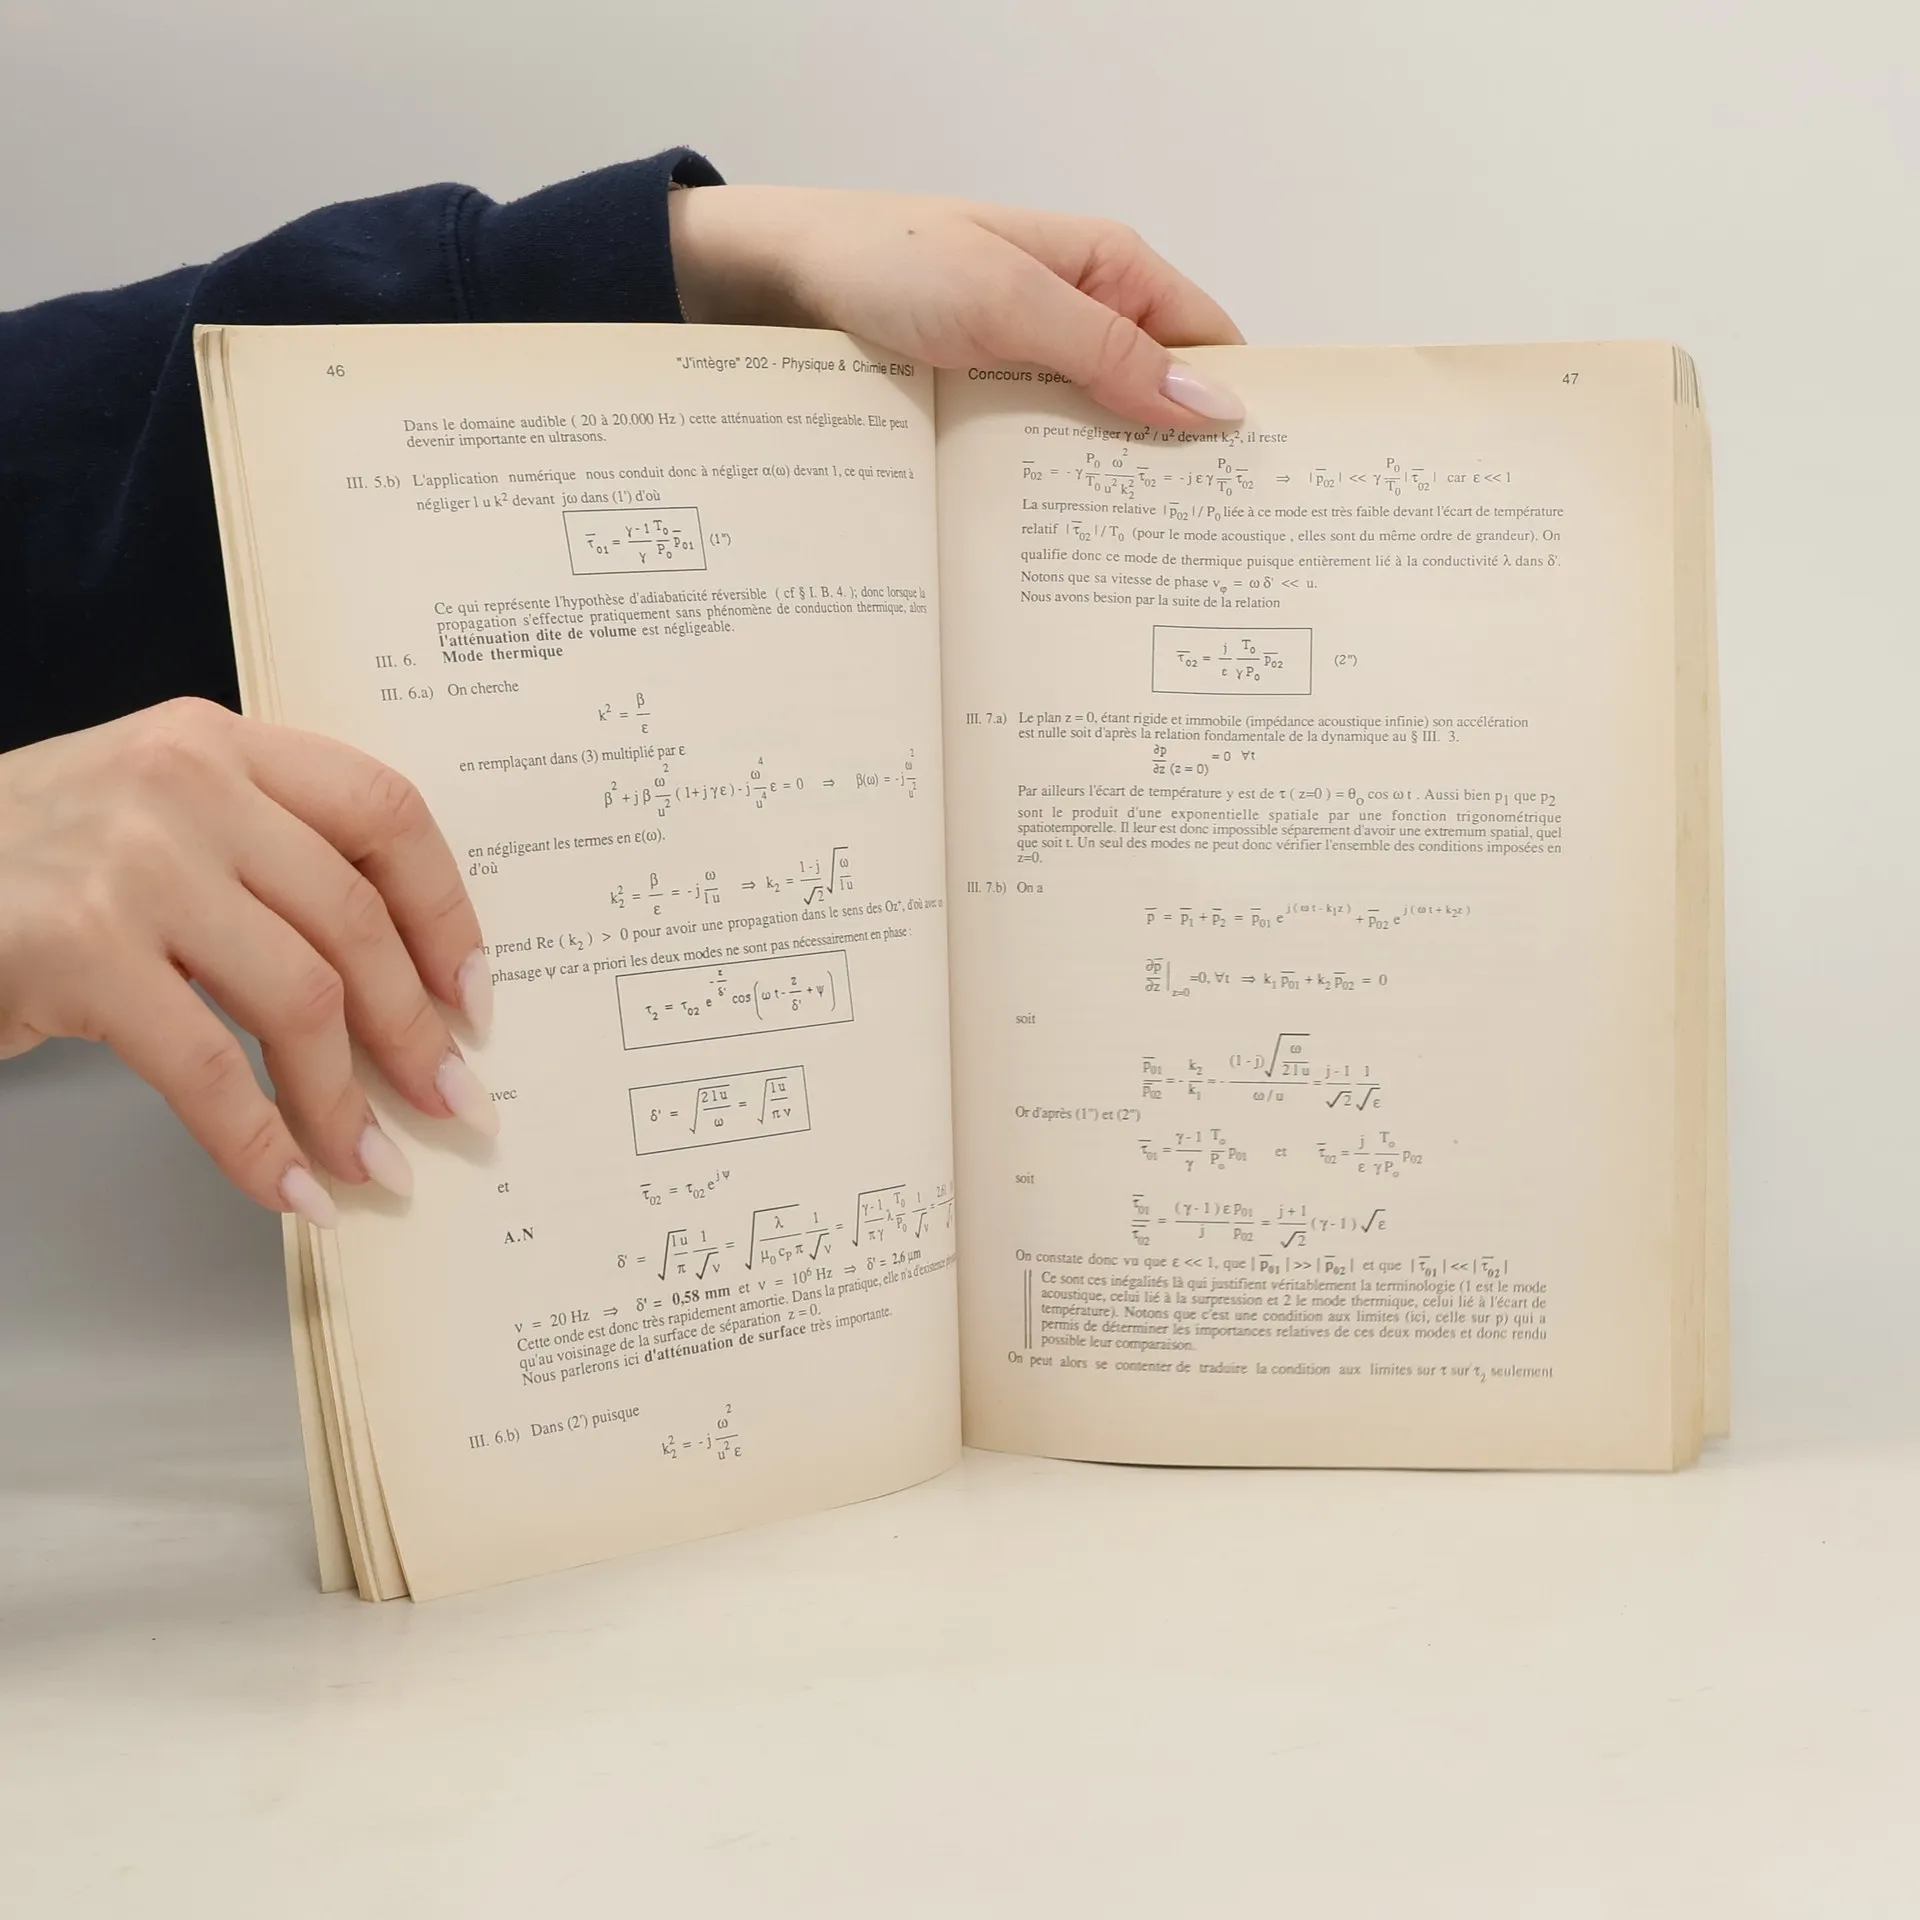 46
"J'intègre" 202 - Physique & Chimie ENSI
Dans le domaine audible ( 20 à 20.000 Hz ) cette atténuation est négligeable. Elle peut
devenir importante en ultrasons.
III. 5.b) L'application numérique nous conduit donc à négliger α(ω) devant 1, ce qui revient à
négliger l u k² devant jω dans (1') d'où
τ̅₀₁ = (γ-1)/γ T₀/P₀ p̅₀₁ (1")
Ce qui représente l'hypothèse d'adiabaticité réversible ( cf § I. B. 4. ); donc lorsque la
propagation s'effectue pratiquement sans phénomène de conduction thermique, alors
l'atténuation dite de volume est négligeable.
III. 6. Mode thermique
III. 6.a) On cherche
k² = β/ε
en remplaçant dans (3) multiplié par ε
β² + jβ ω²/u² (1+jγε) - j ω⁴/u⁴ ε = 0 ⇒ β(ω) = -j ω²/u²
en négligeant les termes en ε(ω).
d'où
k₂² = β/ε = -j ω/lu ⇒ k₂ = (1-j)/√2 √(ω/lu)
n prend Re ( k₂ ) > 0 pour avoir une propagation dans le sens des Oz⁺, d'où
phasage ψ car a priori les deux modes ne sont pas nécessairement en phase :
τ₂ = τ₀₂ e^(-z/δ') cos(ωt - z/δ' + ψ)
avec
δ' = √(2lu/ω) = √(lu/πν)
et
τ̅₀₂ = τ₀₂ e^(jψ)
A.N
δ' = √(lu/π) 1/√ν = √(λ/(μ₀ c_p π)) 1/√ν = √((γ-1)/(πγ) λ T₀/P₀) 1/√ν =
ν = 20 Hz ⇒ δ' = 0,58 mm et ν = 10⁶ Hz ⇒ δ' = 2,6 μm
Cette onde est donc très rapidement amortie. Dans la pratique, elle n'a d'existence
qu'au voisinage de la surface de séparation z = 0.
Nous parlerons ici d'atténuation de surface très importante.
III. 6.b) Dans (2') puisque
k₂² = -j ω²/(u² ε)
Concours spéc
47
on peut négliger γ ω² / u² devant k₂², il reste
p̅₀₂ = -γ P₀/T₀ ω²/(u² k₂²) τ̅₀₂ = -jεγ P₀/T₀ τ̅₀₂ ⇒ |p̅₀₂| << γ P₀/T₀ |τ̅₀₂| car ε << 1
La surpression relative |p̅₀₂|/P₀ liée à ce mode est très faible devant l'écart de température
relatif |τ̅₀₂|/T₀ (pour le mode acoustique , elles sont du même ordre de grandeur). On
qualifie donc ce mode de thermique puisque entièrement lié à la conductivité λ dans δ'.
Notons que sa vitesse de phase v_φ = ω δ' << u.
Nous avons besion par la suite de la relation
τ̅₀₂ = j/ε T₀/(γP₀) p̅₀₂ (2")
III. 7.a) Le plan z = 0, étant rigide et immobile (impédance acoustique infinie) son accélération
est nulle soit d'après la relation fondamentale de la dynamique au § III. 3.
∂p/∂z (z = 0) = 0 ∀t
Par ailleurs l'écart de température y est de τ ( z=0 ) = θ₀ cos ω t . Aussi bien p₁ que p₂
sont le produit d'une exponentielle spatiale par une fonction trigonométrique
spatiotemporelle. Il leur est donc impossible séparement d'avoir une extremum spatial, quel
que soit t. Un seul des modes ne peut donc vérifier l'ensemble des conditions imposées en
z=0.
III. 7.b) On a
p̅ = p̅₁ + p̅₂ = p̅₀₁ e^(j(ωt - k₁z)) + p̅₀₂ e^(j(ωt + k₂z))
∂p̅/∂z |z=0 =0, ∀t ⇒ k₁ p̅₀₁ + k₂ p̅₀₂ = 0
soit
p̅₀₁/p̅₀₂ = - k₂/k₁ = - (1-j)√(ω/2lu) / (ω/u) = (j-1)/√2 1/√ε
Or d'après (1") et (2")
τ̅₀₁ = (γ-1)/γ T₀/P₀ p₀₁ et τ̅₀₂ = j/ε T₀/(γP₀) p₀₂
soit
τ̅₀₁/τ̅₀₂ = (γ-1)ε/j p₀₁/p₀₂ = (j+1)/√2 (γ-1)√ε
On constate donc vu que ε << 1, que |p̅₀₁| >> |p̅₀₂| et que |τ̅₀₁| << |τ̅₀₂|
Ce sont ces inégalités là qui justifient véritablement la terminologie (1 est le mode
acoustique, celui lié à la surpression et 2 le mode thermique, celui lié à l'écart de
température). Notons que c'est une condition aux limites (ici, celle sur p) qui a
permis de déterminer les importances relatives de ces deux modes et donc rendu
possible leur comparaison.
On peut alors se contenter de traduire la condition aux limites sur τ sur τ₂ seulement